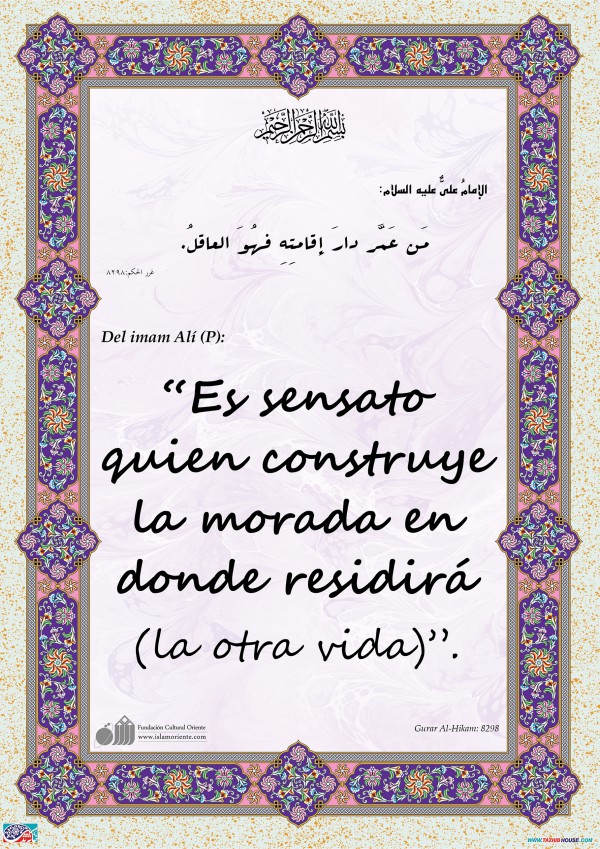 بسم الله الرحمن الرحيم
الإمامُ عليٌّ عليه السلام:
مَن عَمَّر دارَ إقامتِهِ فهُوَ العاقلُ.
غرر الحكم: ٨٢٩٨
Del imam Alí (P):
“Es sensato
quien construye
la morada en
donde residirá
(la otra vida)”.
Fundación Cultural Oriente
www.islamoriente.com
Gurar Al-Hikam: 8298
WWW.TAZHIBHOUSE.COM